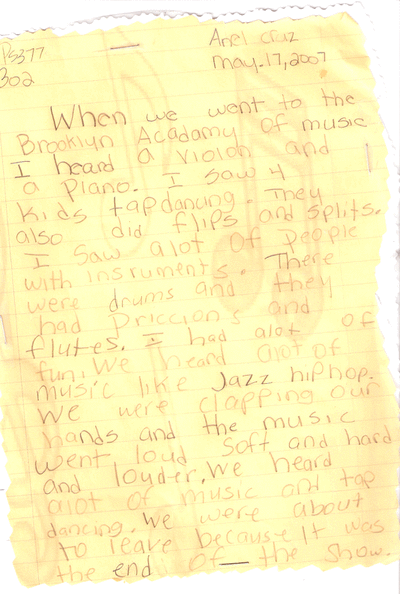 PS377
302
Anel Cruz
May.17,2007
When we went to the
Brooklyn Acadamy of music
I heard a violon and
a piano. I saw 4
kids tapdancing. They
also did flips and splits.
I saw alot of people
with insruments. There
were drums and they
had priccions and
flutes. I had alot of
fun. We heard alot of
music like Jazz hiphop.
We were clapping our
hands and the music
went loud soft and hard
and louder. We heard
alot of music and tap
dancing. We were about
to leave because It was
the end of the show.